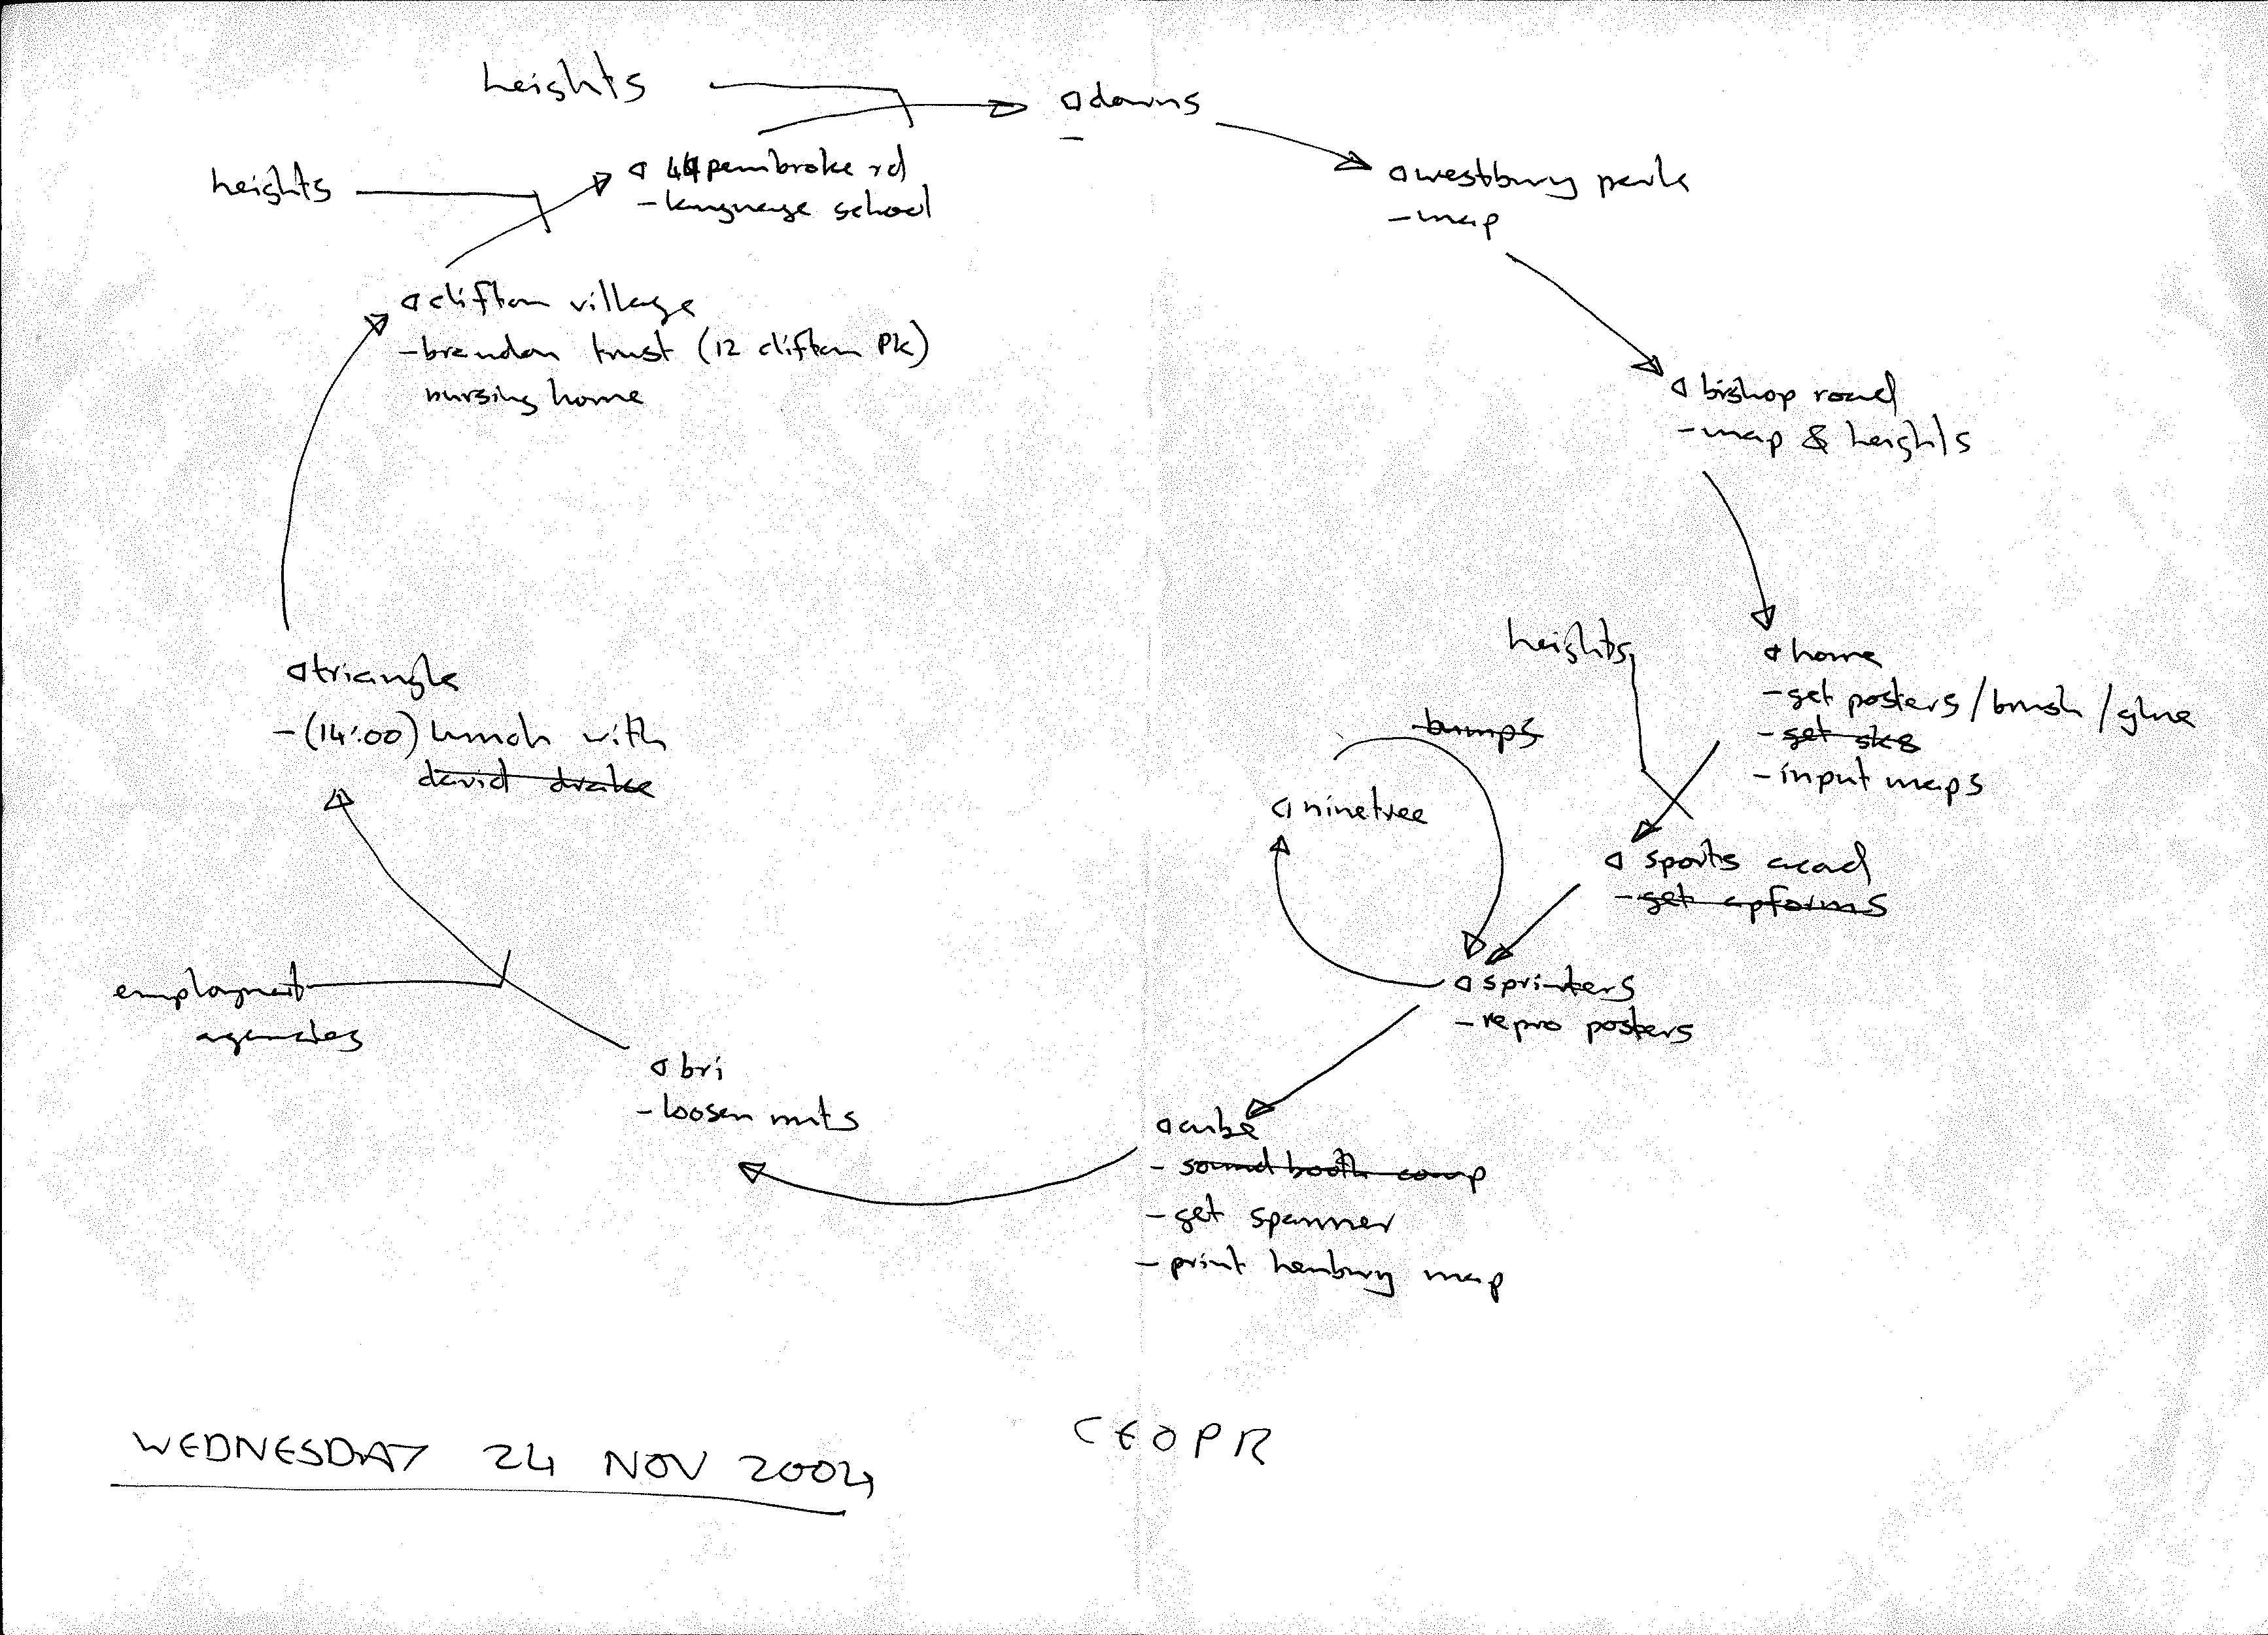 heights
downs
-
heights
44 pembroke rd
- language school
westbury park
- map
clifton village
- brandon trust (12 clifton PK)
nursing home
bishop road
- map & heights
heights
home
- get posters / brush / glue
- get sk8
- input maps
triangle
- (14:00) lunch with
david drake
bumps
ninetree
sports acad
- get apforms
sprinters
- repro posters
employment
agencies
bri
- loosen nuts
cube
- sound booth comp
- get spanner
- print henbury map
WEDNESDAY 24 NOV 2004
CEOPR